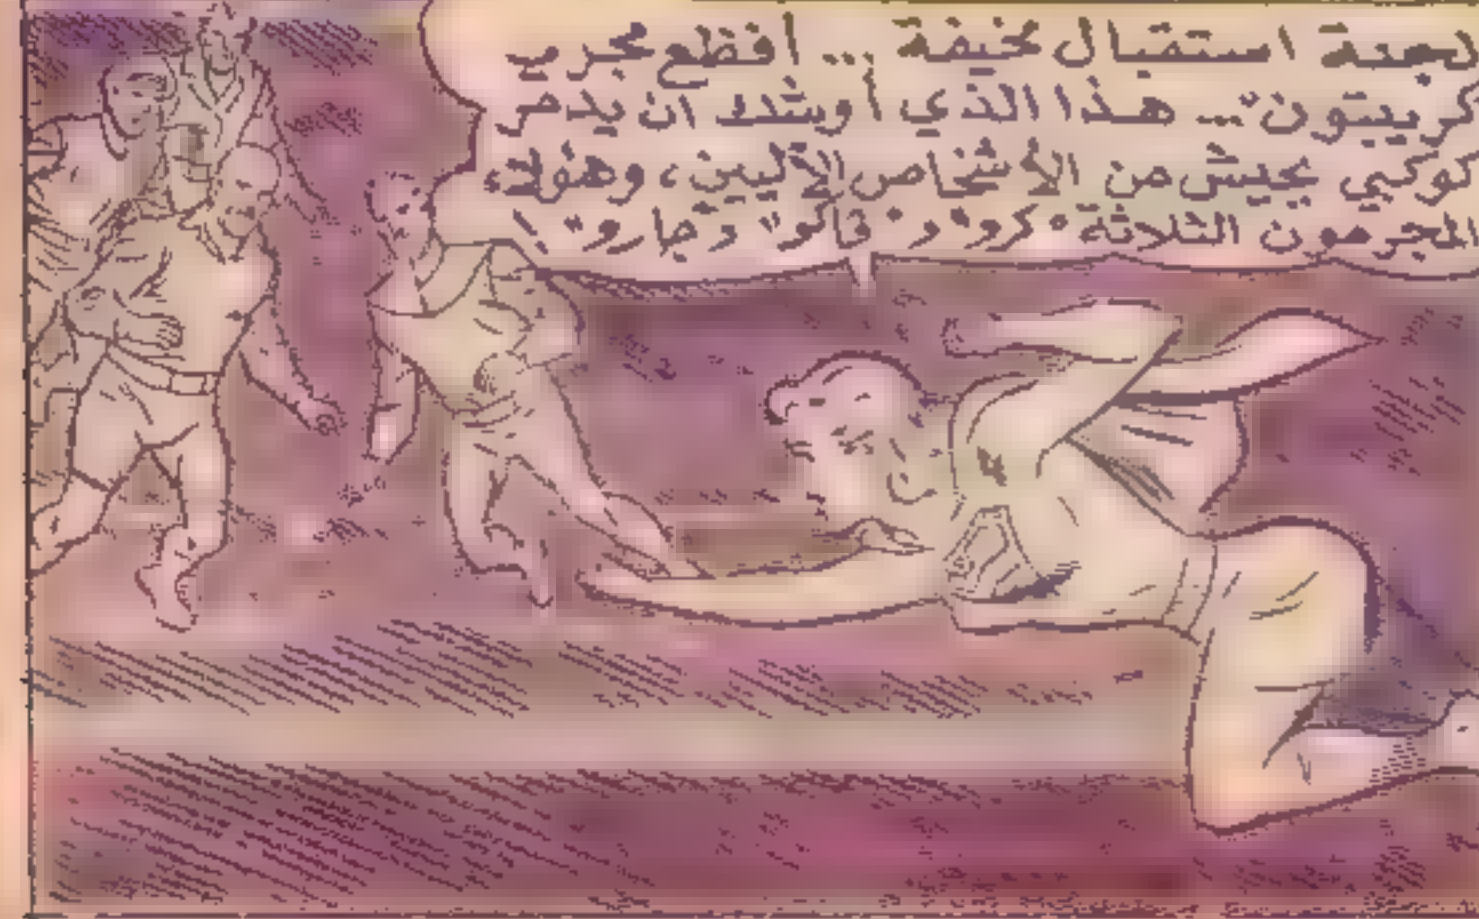 لجنة استقبال مخيفة ... أفظع مجرمي
كريبتون"... هذا الذي أوشك ان يدمر
كوكبي بجيش من الأشخاص الآليين، وهؤلاء
المجرمون الثلاثة "كرو" و"فاكو" و"جارو" !